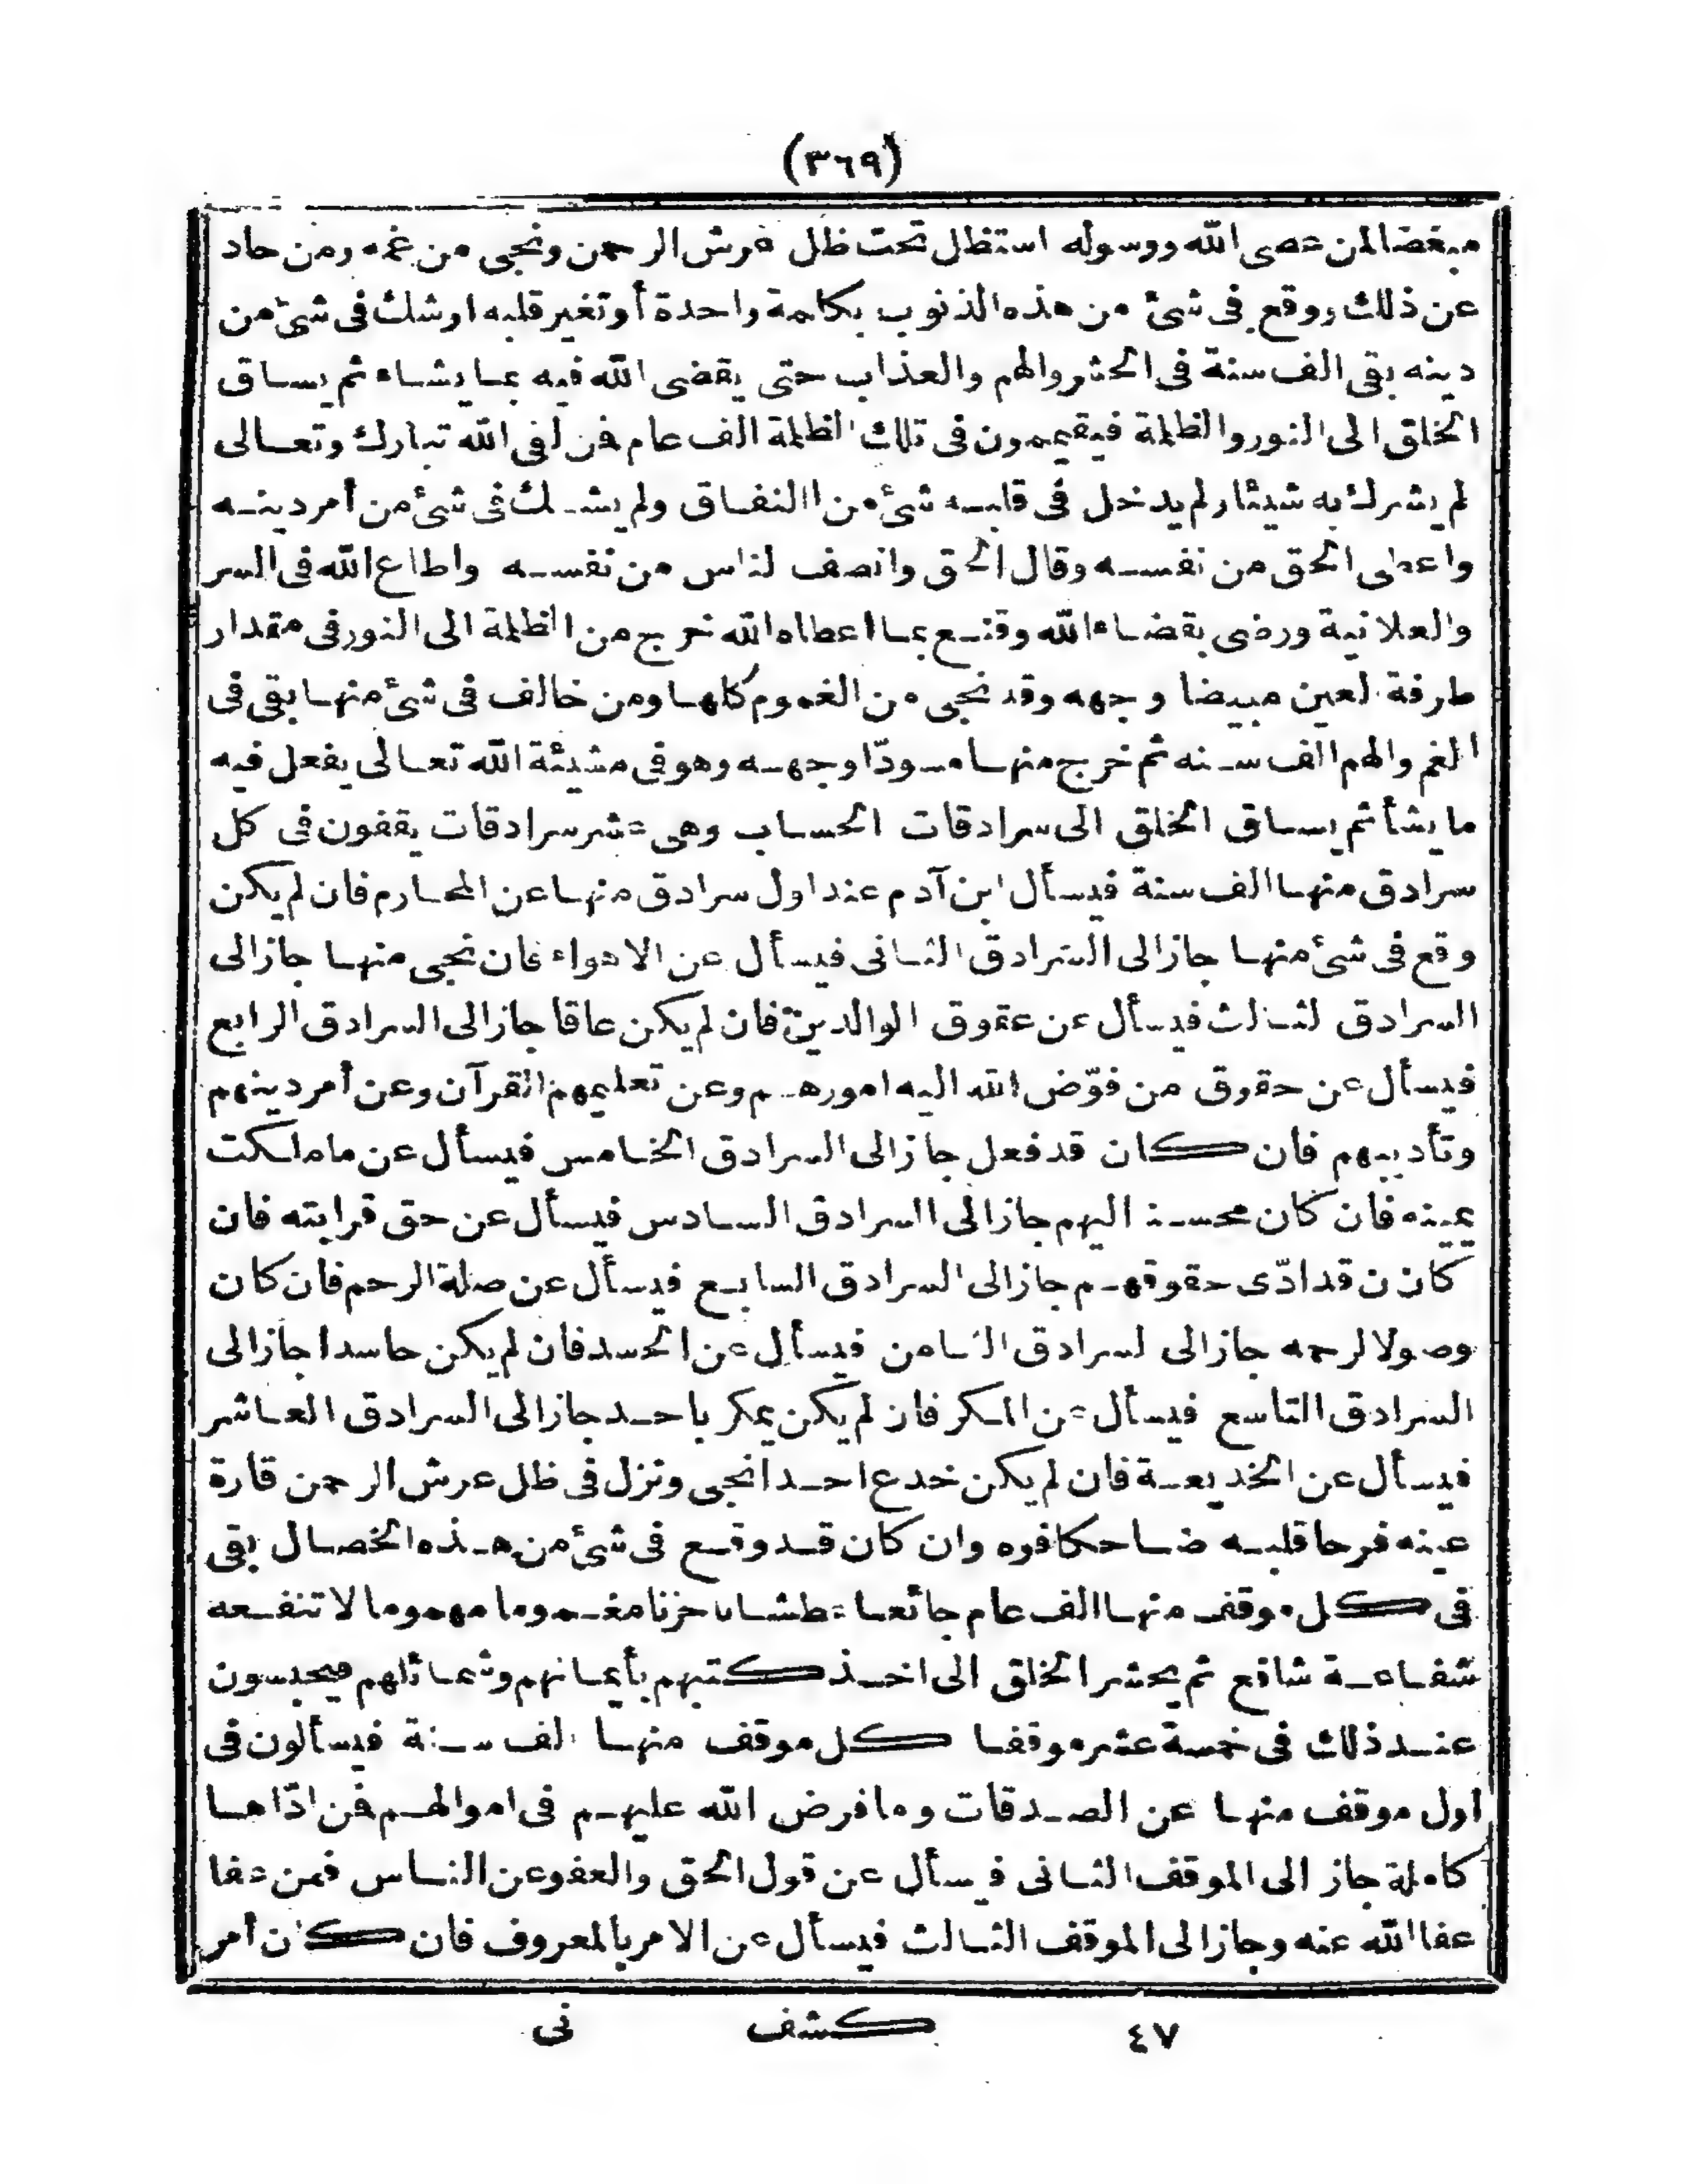 (٣٦٩)
مبغضا لمن عصى الله ورسوله استظل تحت ظل عرش الرحمن ونجى من غمه ومن حاد
عن ذلك ووقع فى شئ من هذه الذنوب بكلمة واحدة أو تغير قلبه او شك فى شئ من
دينه بقى الف سنة فى الحشر والهم والعذاب حتى يقضى الله فيه بما يشاء ثم يساق
الخلق الى النور والظلمة فيقيمون فى تلك الظلمة الف عام فمن لقى الله تبارك وتعالى
لم يشرك به شيئا ولم يدخل فى قلبه شئ من النفاق ولم يشك فى شئ من أمر دينه
واعطى الحق من نفسه وقال الحق وانصف لناس من نفسه واطاع الله فى السر
والعلانية ورضى بقضاء الله وقنع بما اعطاه الله خرج من الظلمة الى النور فى مقدار
طرفة لعين مبيضا وجهه وقد نجى من الغموم كلها ومن خالف فى شئ منها بقى فى
الغم والهم الف سنه ثم خرج منها مسودّا وجهه وهو فى مشيئة الله تعالى يفعل فيه
ما يشأ ثم يساق الخلق الى سرادقات الحساب وهى عشر سرادقات يقفون فى كل
سرادق منها الف سنة فيسأل ابن آدم عند اول سرادق منها عن المحارم فان لم يكن
وقع فى شئ منها جاز الى السرادق الثانى فيسأل عن الاهواء فان نجى منها جاز الى
السرادق لثالث فيسأل عن عقوق الوالدين فان لم يكن عاقا جاز الى السرادق الرابع
فيسأل عن حقوق من فوّض الله اليه امورهم وعن تعليمهم القرآن وعن أمر دينهم
وتأديبهم فان كان قد فعل جاز الى السرادق الخامس فيسأل عن ما ملكت
يمينه فان كان محسنا اليهم جاز الى السرادق السادس فيسأل عن حق قرابته فان
كان ن قد ادّى حقوقهم جاز الى السرادق السابع فيسأل عن صلة الرحم فان كان
وصولا لرحمه جاز الى لسرادق الثامن فيسأل عن الحسد فان لم يكن حاسدا جاز الى
السرادق التاسع فيسأل عن المكر فان لم يكن يمكر باحد جاز الى السرادق العاشر
فيسأل عن الخديعة فان لم يكن خدع احدا نجى ونزل فى ظل عرش الرحمن قارة
عينه فرحا قلبه ضاحكا فوه وان كان قد وقع فى شئ من هذه الخصال بقى
فى كل موقف منها الف عام جائعا عطشانا حزنا مغموما مهموما لا تنفعه
شفاعة شافع ثم يحشر الخلق الى اخذ كتبهم بأيمانهم وشمائلهم فيحبسون
عند ذلك فى خمسة عشر موقفا كل موقف منها الف سنة فيسألون فى
اول موقف منها عن الصدقات وما فرض الله عليهم فى اموالهم فمن ادّاها
كاملة جاز الى الموقف الثانى فيسأل عن قول الحق والعفو عن الناس فمن عفا
عفا الله عنه وجاز الى الموقف الثالث فيسأل عن الامر بالمعروف فان كان أمر
٤٧ كشف نى